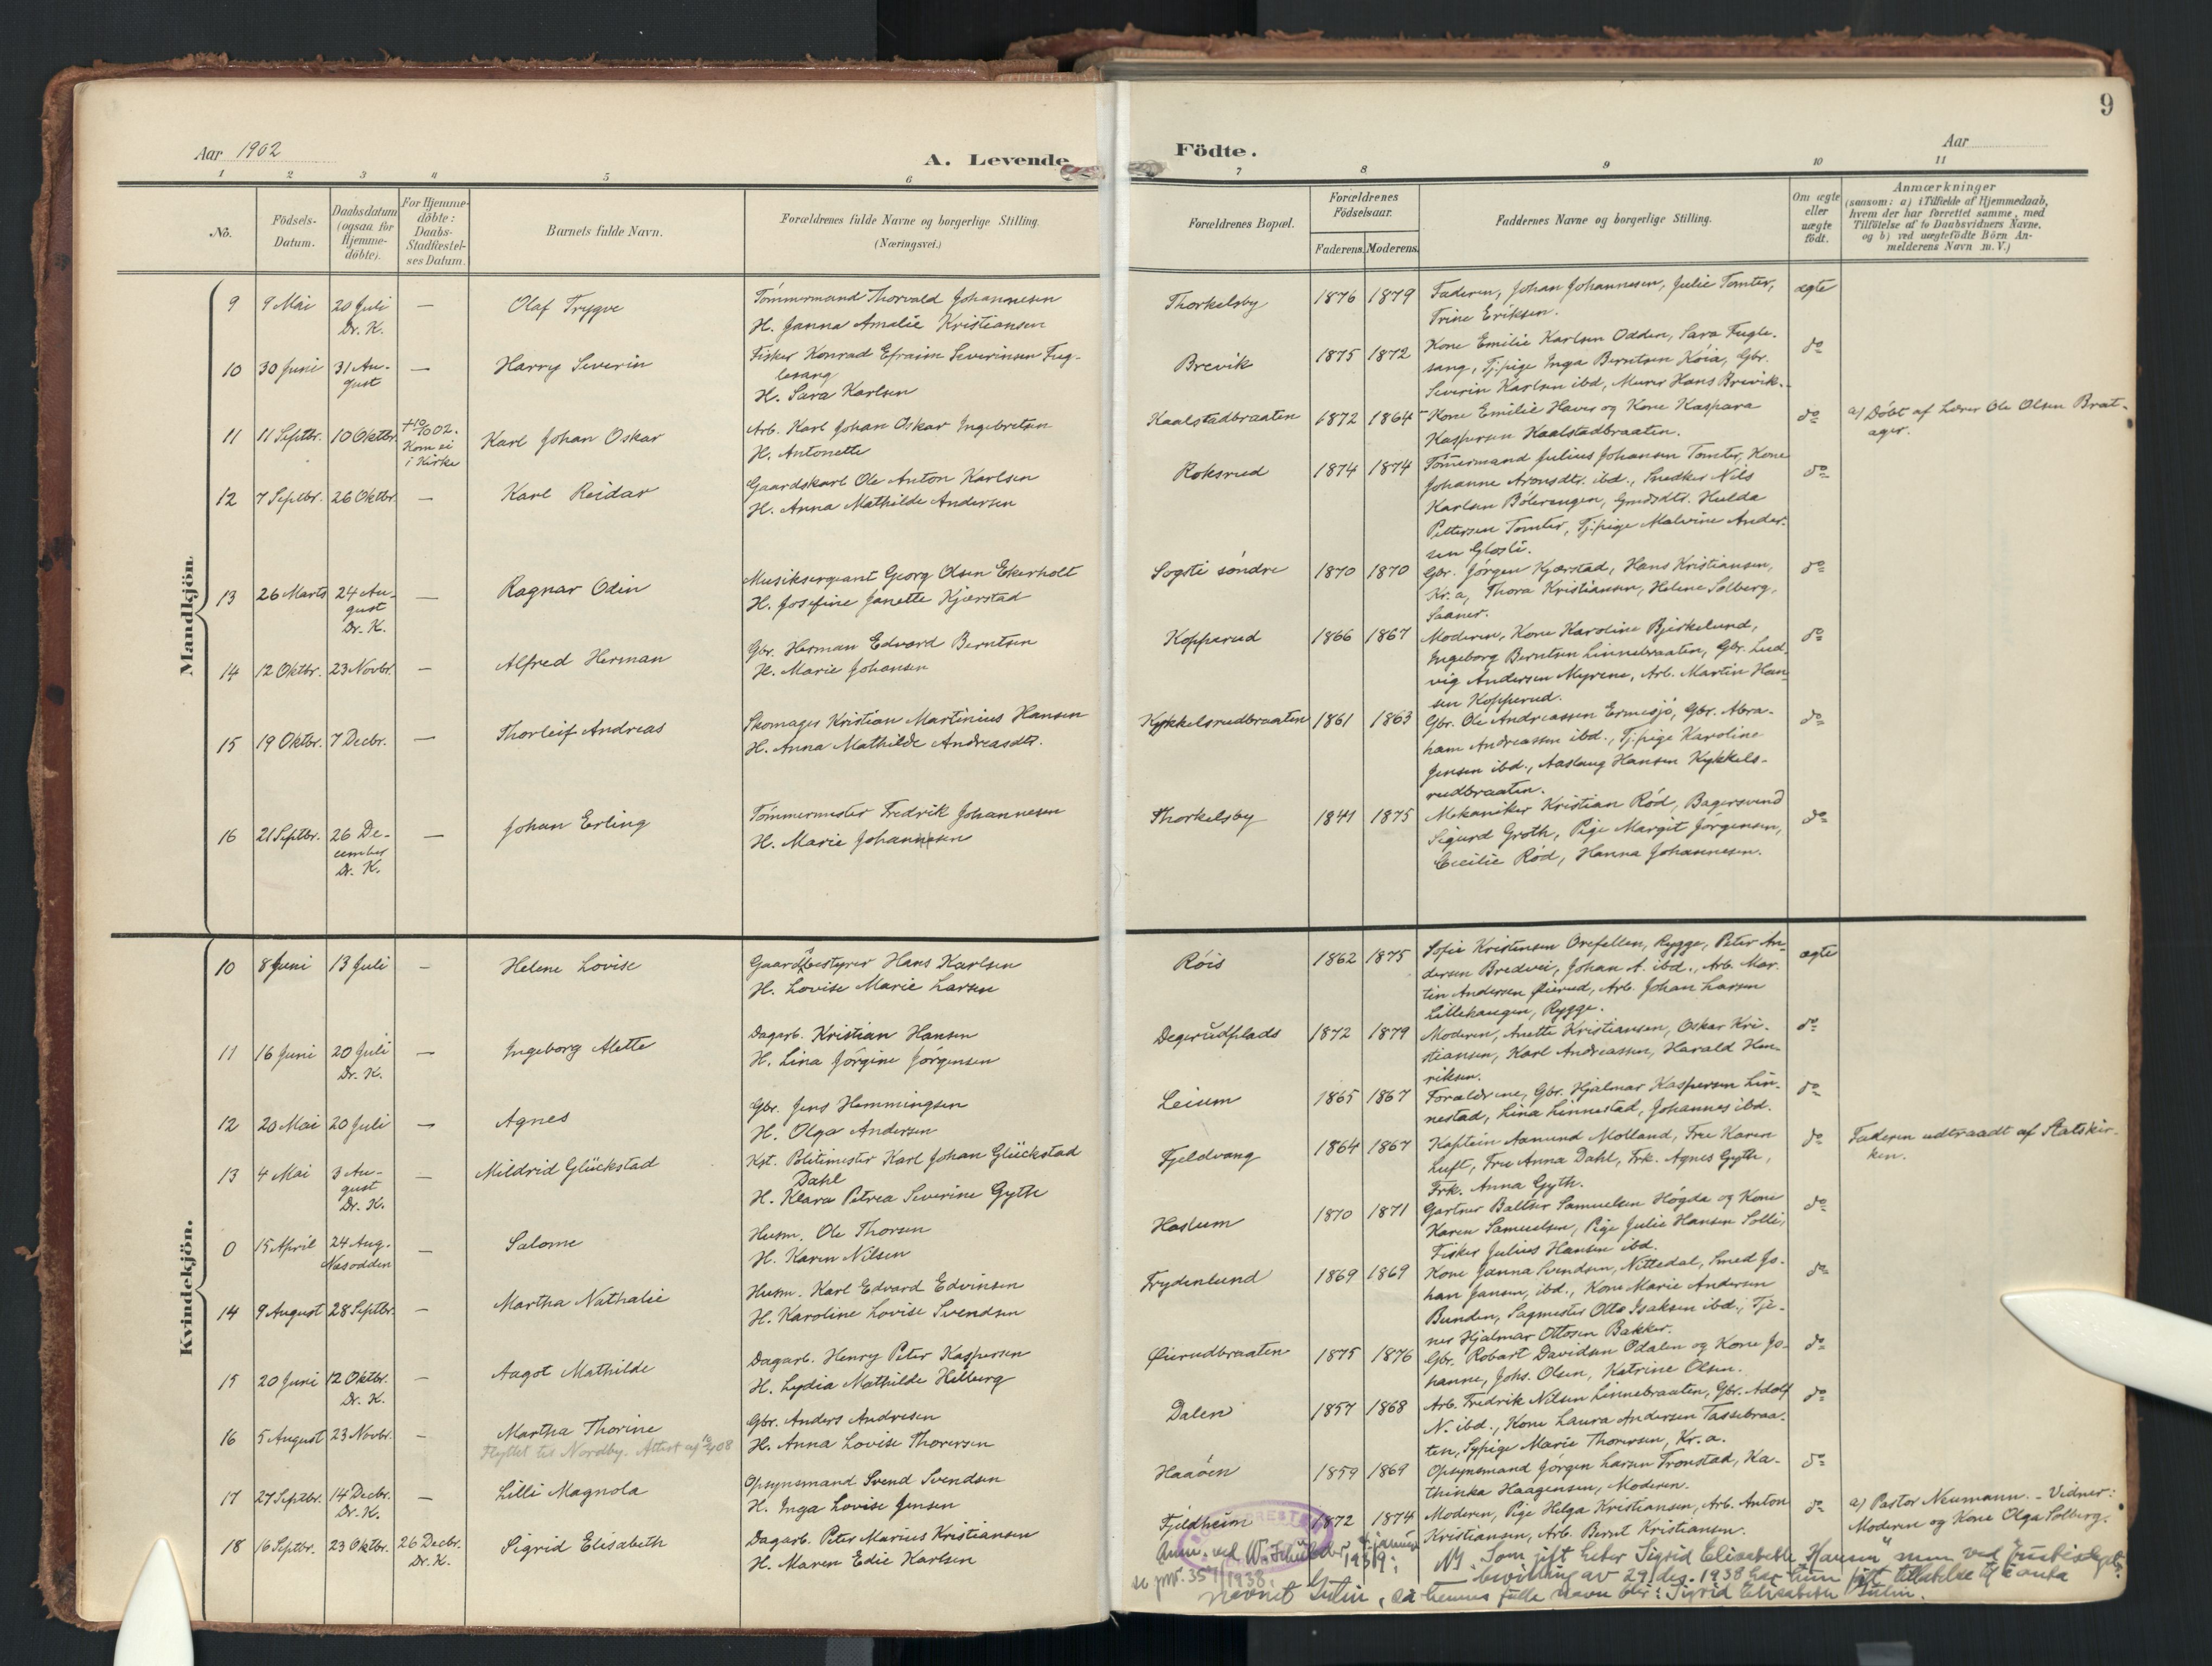 9
Aar 1902
A. Levende
Födte.
Aar
1 2 3 4 5 6 7 8 9 10 11
No.
Födsels-
Datum.
Daabsdatum
(ogsaa for
Hjemme-
döbte).
For Hjemme-
döbte:
Daabs-
Stadfæstel-
ses Datum.
Barnets fulde Navn.
Forældrenes fulde Navne og borgerlige Stilling.
(Næringsvei.)
Forældrenes Bopæl.
Forældrenes
Födselsaar.
Faderens. Moderens.
Faddernes Navne og borgerlige Stilling.
Om ægte
eller
uægte
födt.
Anmærkninger
(saasom: a) i Tilfælde af Hjemmedaab,
hvem der har forrettet samme, med
Tilföielse af to Daabsvidners Navne.
og b) ved uægtefödte Börn An-
melderens Navn m. V.)
Mandkjön.
9 9 Mai 20 Juli — Olaf Trygve
Dr. K.
Tömmermand Thorvald Johannesen
H. Janna Amalie Kristiansen
Thorkelsby 1876 1879 Faderen, Johan Johannesen, Julie Tomter, ægte
Trine Eriksen.
10 30 Juni 31 Au- — Harry Severin
gust
Fisker Konrad Efraim Severinsen Fug-
lesang
H. Sara Karlsen
Brevik 1875 1872 Kone Emilie Karlsen Odden, Sara Fugle- do
sang, Tj.pige Inga Berntsen Köia, Gbr.
Severin Karlsen ibd, Murer Hans Brevik.
11 11 Septbr. 10 Oktbr. Karl Johan Oskar
Kom ei
i Kirke
Arb. Karl Johan Oskar Ingebretsen
H. Antonette
Kaalstadbraaten 1872 1864 Kone Emilie Haver og Kone Kaspara do
Kaspersen Kaalstadbraaten.
a) Döbt af Lærer Ole Olsen Brat-
ager.
12 7 Septbr. 26 Oktbr. — Karl Reidar
Gaardskarl Ole Anton Karlsen
H. Anna Mathilde Andersen
Roksrud 1874 1874 Tömmermand Julius Johansen Tomter, Kone do
Johanne Aronsdtr. ibd., Snedker Nils
Karlsen Bölerengen, Gmdsdtr. Hulda
Pettersen Tomter, Tj.pige Malvine Ander-
sen Glosli.
13 26 Marts 24 Au- — Ragnar Odin
gust
Dr. K.
Musiksergeant Georg Olsen Ekerholt
H. Josefine Janette Kjærstad
Sogsti söndre 1870 1870 Gbr. Jörgen Kjærstad, Hans Kristiansen, do
Kr.a, Thora Kristiansen, Helene Solberg,
Saaner.
14 12 Oktbr. 23 Novbr. — Alfred Herman
Gbr. Herman Edvard Berntsen
H. Marie Johansen
Kopperud 1866 1867 Moderen, Kone Karoline Bjerkelund, do
Ingeborg Berntsen Linnebraaten, Gbr. Lud-
vig Andersen Myrene, Arb. Martin Han-
sen Kopperud.
15 19 Oktbr. 7 Decbr. — Thorleif Andreas
Skomager Kristian Martinius Hansen
H. Anna Mathilde Andreasdtr.
Kykkelsrudbraaten 1861 1863 Gbr. Ole Andreassen Ermesjö, Gbr. Abra- do
ham Andreassen ibd., Tj.pige Karoline
Jensen ibd., Aaslaug Hansen Kykkels-
rudbraaten.
16 21 Septbr. 26 De- — Johan Erling
cember
Dr. K.
Tömmermester Fredrik Johannesen
H. Marie Johannesen
Thorkelsby 1841 1875 Mekaniker Kristian Röd, Bagersvend do
Sigurd Groth, Pige Margit Jörgensen,
Cecilie Röd, Hanna Johannesen.
Kvindekjön.
10 8 Juni 13 Juli — Helene Lovise
Gaardsbestyrer Hans Karlsen
H. Lovise Marie Larsen
Röis 1862 1875 Sofie Kristensen Orefellen, Rygge, Peter An- ægte
dersen Bredvei, Johan A. ibd., Arb. Mar-
tin Andersen Öierud, Arb. Johan Larsen
Lillehaugen, Rygge.
11 16 Juni 20 Juli — Ingeborg Alette
Dr. K.
Dagarb. Kristian Hansen
H. Lina Jörgine Jörgensen
Degerudplads 1872 1879 Moderen, Anette Kristiansen, Oskar Kri- do
stiansen, Karl Andreassen, Harald Hen-
riksen.
12 20 Mai 20 Juli — Agnes
Gbr. Jens Hemmingsen
H. Olga Andersen
Leium 1865 1867 Forældrene, Gbr. Hjalmar Kaspersen Lin- do
nestad, Lina Linnestad, Johannes ibd.
13 4 Mai 3 Au- — Mildrid Glückstad
gust
Dr. K.
Kst. Politimester Karl Johan Glückstad
Dahl
H. Klara Petrea Severine Gyth
Fjeldvang 1864 1867 Kaptein Aamund Molland, Fru Karen do
Luft, Fru Anna Dahl, Frk. Agnes Gyth,
Frk. Anna Gyth.
Faderen udtraadt af Statskir-
ken.
0 15 April 24 Aug. — Salome
Næsodden
Husm. Ole Thorsen
H. Karen Nilsen
Haslum 1870 1871 Gartner Baltser Samuelsen Högda og Kone do
Karen Samuelsen, Pige Julie Hansen Solli,
Fisker Julius Hansen ibd.
14 9 August 28 Septbr. — Martha Nathalie
Husm. Karl Edvard Edvinsen
H. Karoline Lovise Svendsen
Frydenlund 1869 1869 Kone Janna Svendsen, Nittedal, Smed Jo- do
han Jansen, ibd., Kone Marie Andersen
Bunden, Sagmester Otto Isaksen ibd., Tje-
ner Hjalmar Ottosen Bakker.
15 20 Juni 12 Oktbr. — Aagot Mathilde
Dr. K.
Dagarb. Henry Peter Kaspersen
H. Lydia Mathilde Helberg
Öierudbraaten 1875 1876 Gbr. Robart Davidsen Odalen og Kone Jo- do
hanne, Johs. Olsen, Katrine Olsen.
16 5 August 23 Novbr. — Martha Thorine
Flyttet til Nordby. Attest af
Gbr. Anders Andresen
H. Anna Lovise Thoresen
Dalen 1857 1868 Arb. Fredrik Nilsen Linnebraaten, Gbr. Adolf do
N. ibd., Kone Laura Andersen Tassebraa-
ten, Sypige Marie Thoresen, Kr.a.
17 27 Septbr. 14 Decbr. — Lilli Magnola
Dr. K.
Opsynsmand Svend Svendsen
H. Inga Lovise Jensen
Haaöen 1859 1869 Opsynsmand Jörgen Larsen Tronstad, Ka- do
thinka Haagensen, Moderen.
18 16 Septbr. 23 Oktbr. 26 Decbr. Sigrid Elisabeth
Dr. K.
Dagarb. Peter Marius Kristiansen
H. Maren Edie Karlsen
Fjeldheim 1872 1874 Moderen, Pige Helga Kristiansen, Arb. Anton do
Kristiansen, Arb. Bernt Kristiansen.
a) Pastor Neumann. - Vidner:
Moderen og Kone Olga Solberg.
Anm. ved januar 1939:
Som gift heter Sigrid Elisabeth Hansen men ved
bevilling av 29 des. 1938 har hun fått tillatelse til å anta
navnet så hennes fulle navn blir: Sigrid Elisabeth